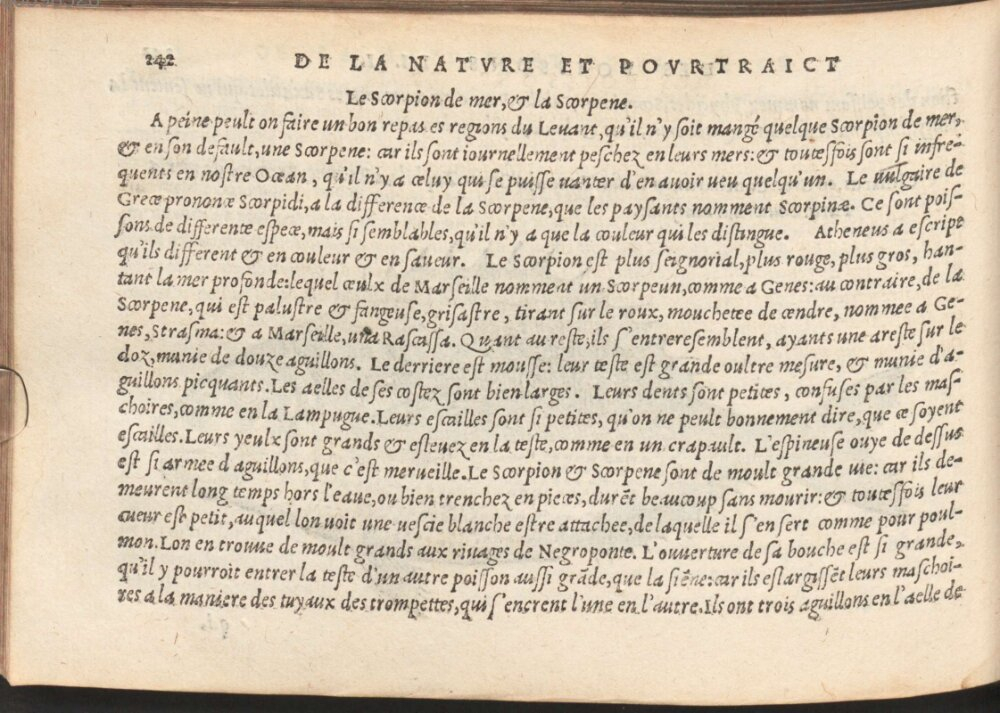 242 DE LA NATVRE ET POVRTRAICT
Le Scorpion de mer, & la Scorpene.
A peine peult on faire un bon repas es regions du Levant, qu'il n'y soit mangé quelque Scorpion de mer,
& en son default, une Scorpene: car ils sont iournellement peschez en leurs mers: & toutesfois sont si infre-
quents en nostre Ocean, qu'il n'y a celuy qui se puisse uanter d'en avoir ueu quelqu'un. Le uulgaire de
Grece prononce Scorpidi, a la difference de la Scorpene, que les paysants nomment Scorpinæ. Ce sont pois-
sons de differente espece, mais si semblables, qu'il n'y a que la couleur qui les distingue. Atheneus a escript
qu'ils different & en couleur & en saueur. Le Scorpion est plus seignorial, plus rouge, plus gros, han-
tant la mer profonde: lequel ceulx de Marseille nomment un Scorpeun, comme a Genes: au contraire, de la
Scorpene, qui est palustre & fangeuse, grisastre, tirant sur le roux, mouchetee de cendre, nommee a Ge-
nes, Strasma: & a Marseille, una Rascassa. Quant au reste, ils s'entreresemblent, ayants une areste sur le
doz, munie de douze aguillons. Le derriere est mousse: leur teste est grande oultre mesure, & munie d'a-
guillons picquants. Les aelles de ses costez sont bien larges. Leurs dents sont petites, confuses par les mas-
choires, comme en la Lampugue. Leurs escailles sont si petites, qu'on ne peult bonnement dire, que ce soyent
escailles. Leurs yeulx sont grands & esleuez en la teste, comme en un crapault. L'espineuse ouye de dessus
est si armee d'aguillons, que c'est merveille. Le Scorpion & Scorpene sont de moult grande uie: car ils de-
meurent long temps hors l'eaue, ou bien trenchez en pieces, durēt beaucoup sans mourir: & toutesfois leur
cueur est petit, auquel lon uoit une uescie blanche estre attachee, de laquelle il s'en sert comme pour poul-
mon. Lon en trouue de moult grands aux riuages de Negroponte. L'ouverture de sa bouche est si grande,
qu'il y pourroit entrer la teste d'un autre poisson aussi grāde, que la siēne: car ils eslargissēt leurs maschoi-
res a la maniere des tuyaux des trompettes, qui s'encrent l'une en l'autre. Ils ont trois aguillons en l'aelle de